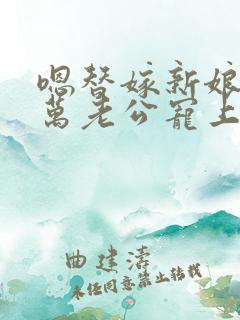 嗯替嫁新娘
萬老公寵上
曲建濤
未经同意禁止转载